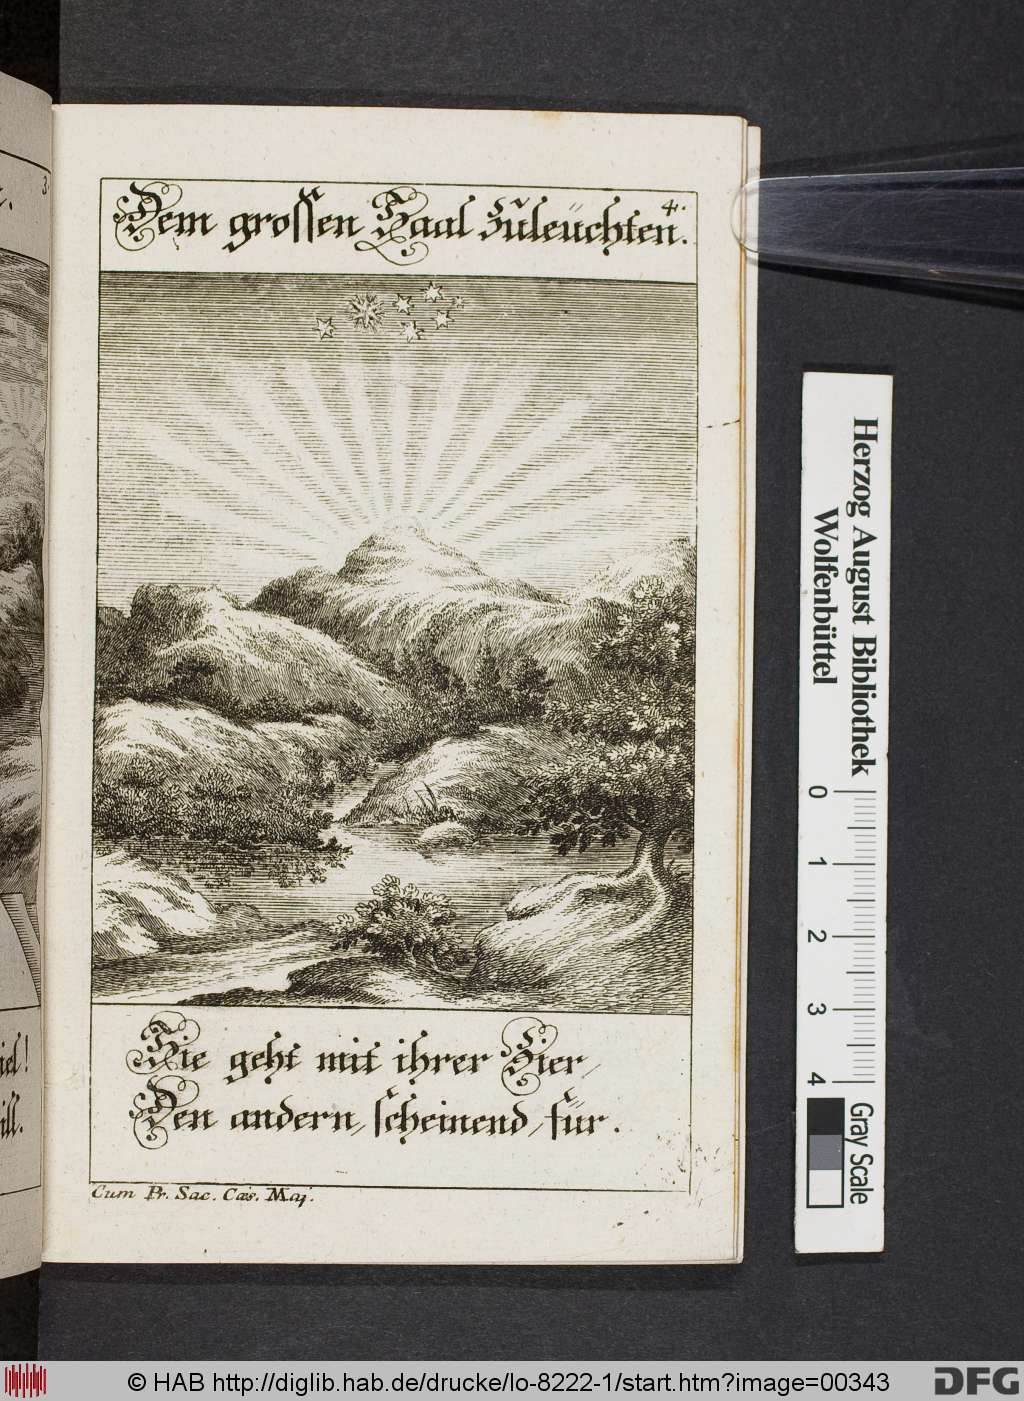 3.
4.
Dem grossen Saal Zuleüchten.
Sie geht mit ihrer Zier,
Den andern, scheinend, für.
Cum Pr. Sac. Cæs. Maj.
iel!
ill.
Herzog August Bibliothek
Wolfenbüttel
0 1 2 3 4
Gray Scale
© HAB http://diglib.hab.de/drucke/lo-8222-1/start.htm?image=00343
DFG